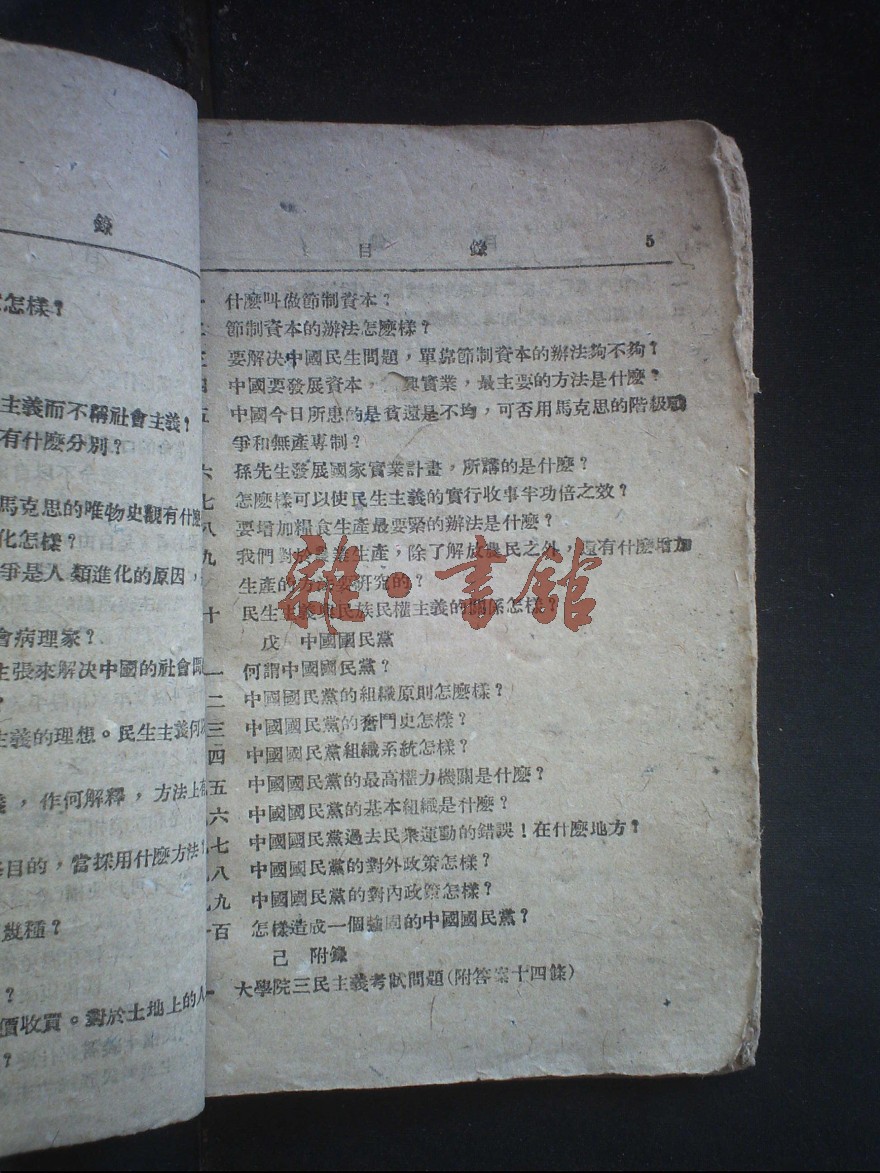 錄
怎樣？
主義而不稱社會主義？
有什麽分別？
馬克思的唯物史觀有什麽
化怎樣？
爭是人類進化的原因，
會病理家？
主張來解决中國的社會問
？
主義的理想。民生主義何
，作何解釋，方法上
目的，當採用什麽方法
幾種？
？
價收買。對於土地上的人
？
目 錄 5
什麽叫做節制資本？
節制資本的辦法怎麽樣？
要解决中國民生問題，單靠節制資本的辦法夠不夠？
四 中國要發展資本，興實業，最主要的方法是什麽？
五 中國今日所患的是貧還是不均，可否用馬克思的階級戰
爭和無產專制？
六 孫先生發展國家實業計畫，所講的是什麽？
七 怎麽樣可以使民生主義的實行收事半功倍之效？
八 要增加糧食生產最要緊的辦法是什麽？
九 我們對於農業生產，除了解放農民之外，還有什麽增加
生產的方法要研究的？
十 民生主義與民族民權主義的關係怎樣？
戊 中國國民黨
一 何謂中國國民黨？
二 中國國民黨的組織原則怎麽樣？
三 中國國民黨的奮鬥史怎樣？
四 中國國民黨組織系統怎樣？
五 中國國民黨的最高權力機關是什麽？
六 中國國民黨的基本組織是什麽？
七 中國國民黨過去民衆運動的錯誤！在什麽地方？
八 中國國民黨的對外政策怎樣？
九 中國國民黨的對內政策怎樣？
一百 怎樣造成一個强固的中國國民黨？
己 附錄
一 大學院三民主義考試問題（附答案十四條）
龍·書館